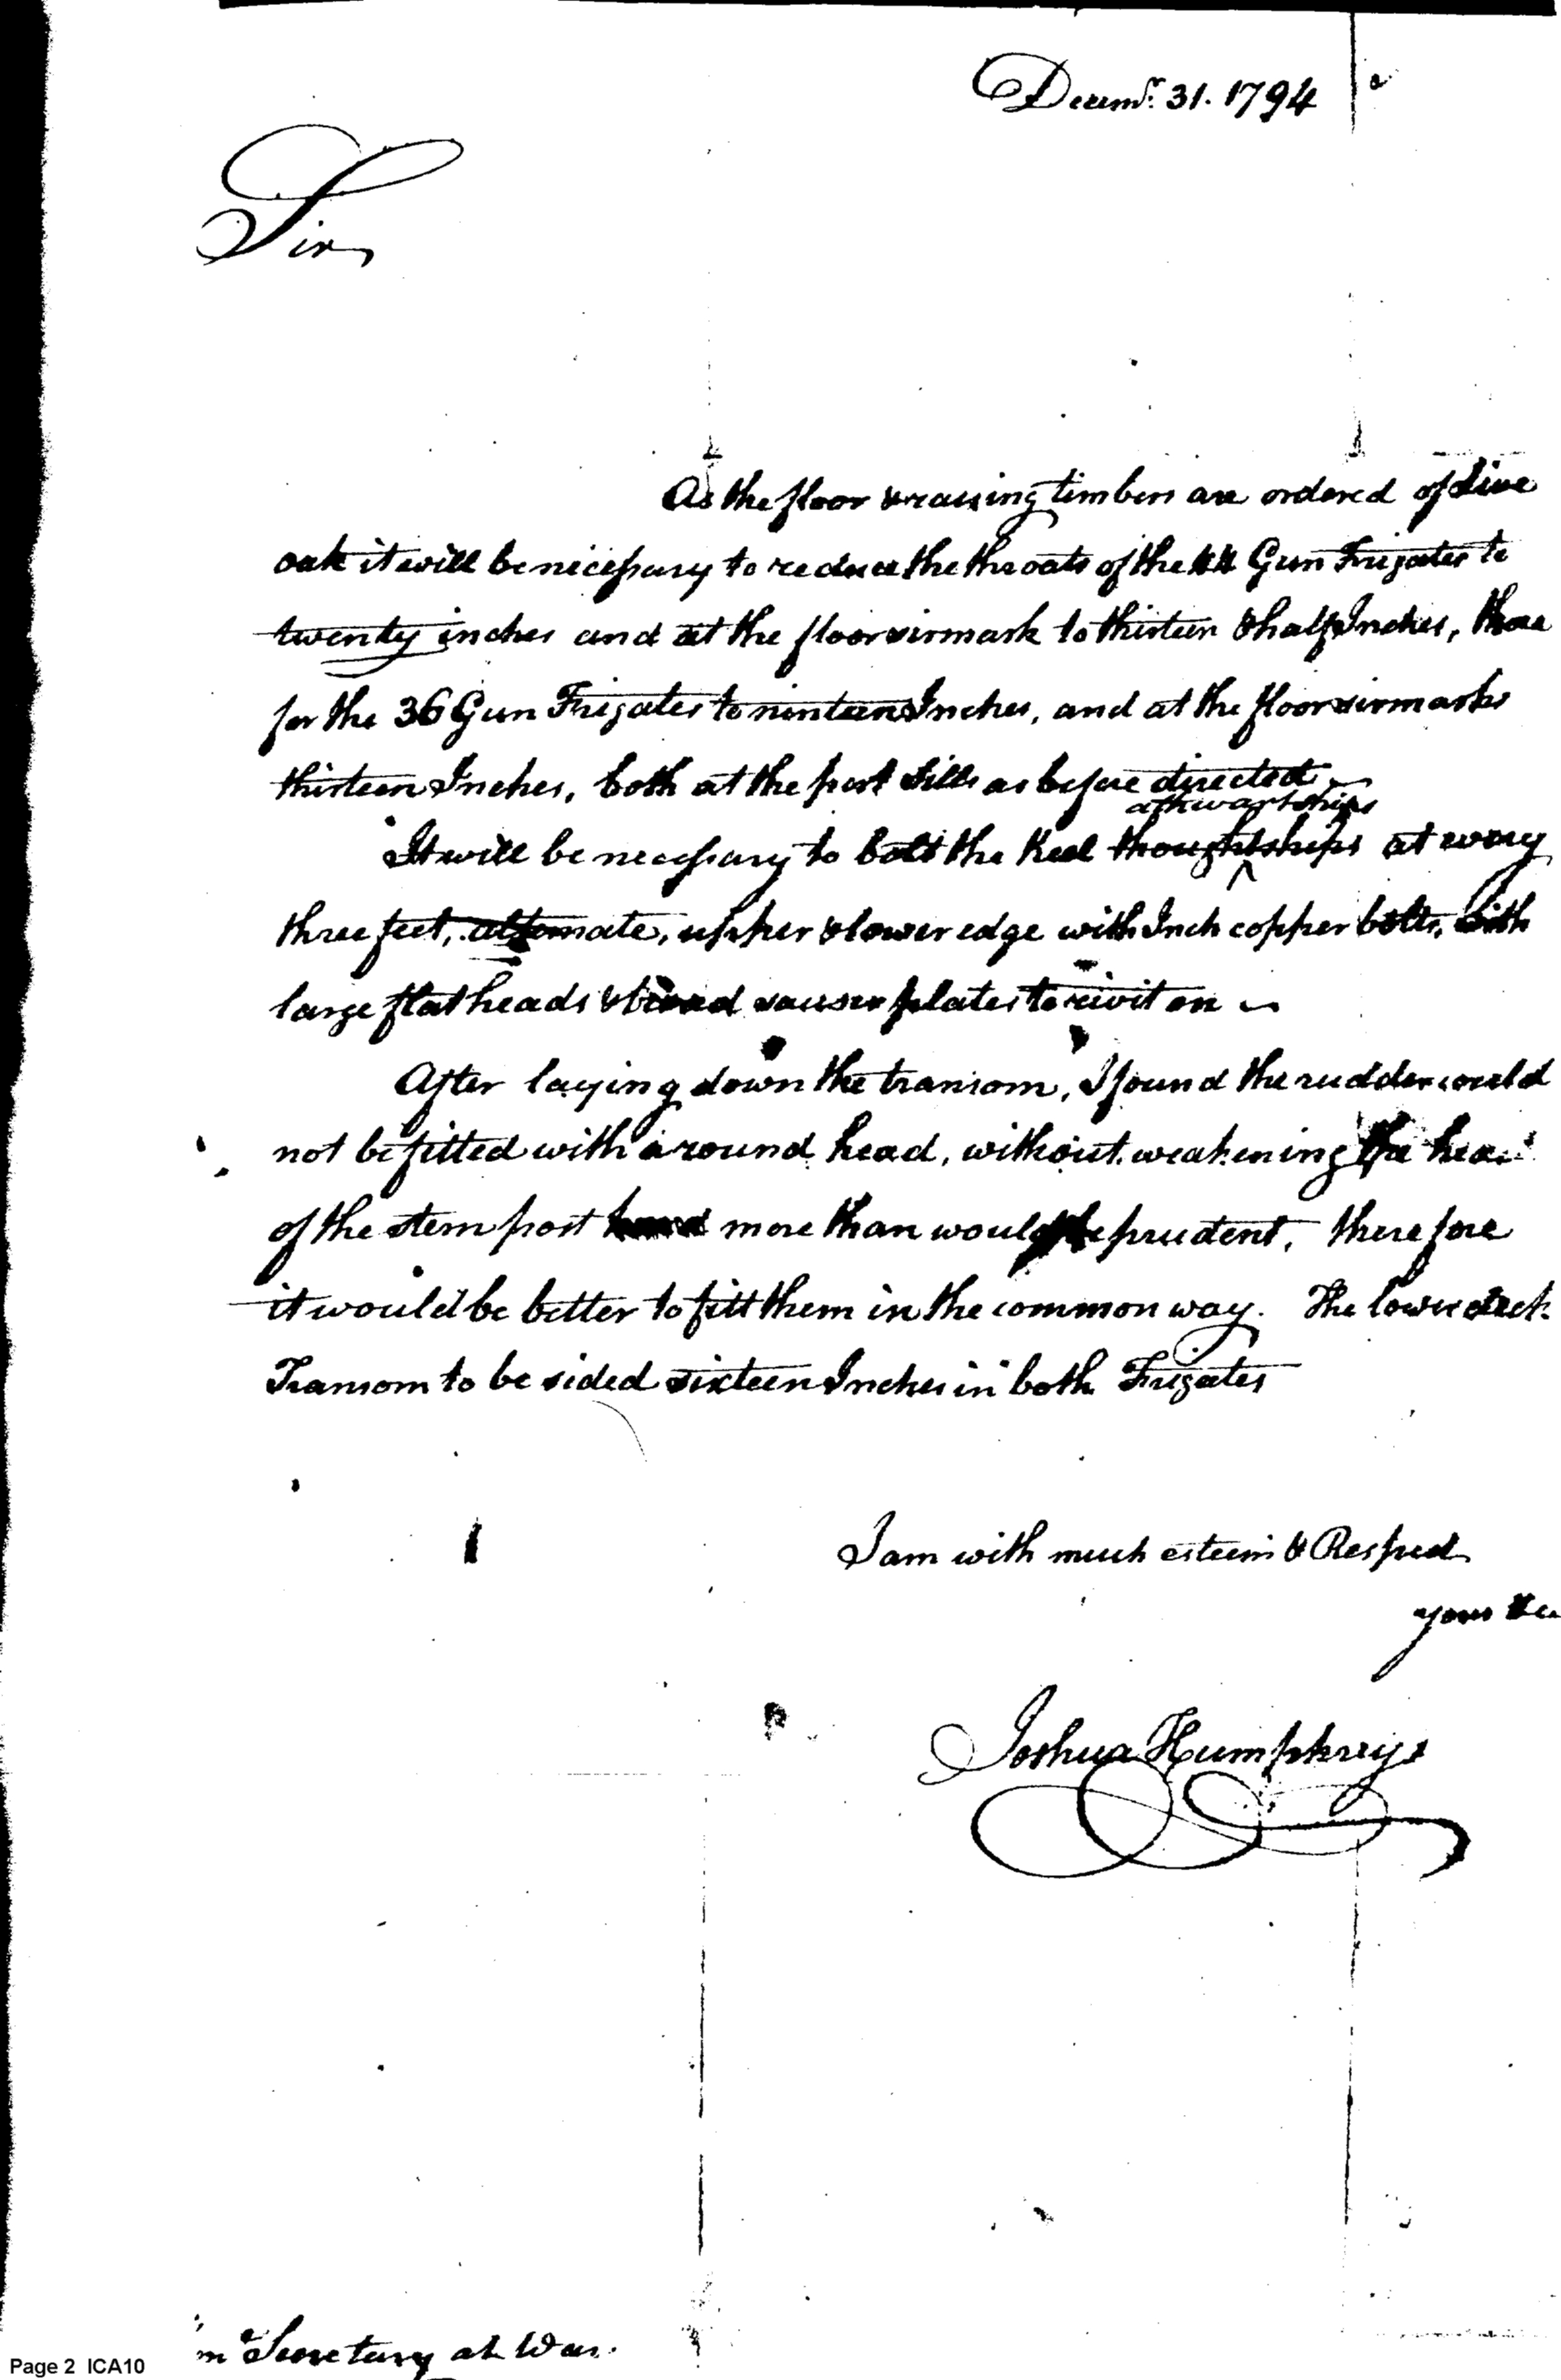 Decemr. 31. 1794
Sir,
As the floor & raising timbers are ordered of live
oak it will be necessary to reduce the throats of the 44 Gun Frigates to
twenty inches and at the floor sirmark to thirteen & half Inches, those
for the 36 Gun Frigates to ninteen Inches, and at the floor sirmarks
thirteen Inches, both at the port sills as before directed
athwartships
It will be necessary to bolt the Keel thoughtships at every
three feet, alternate, upper & lower edge with Inch copper bolts, with
large flat heads & sauser plates to rivit on
After laying down the transom, I found the rudder could
not be fitted with a round head, without weakening the head
of the stern post more than would be prudent, therefore
it would be better to fitt them in the common way. The lower deck
Transom to be sided sixteen Inches in both Frigates
I am with much esteem & Respect
yours &c
Joshua Humphreys
Secretary at War.
Page 2 ICA10